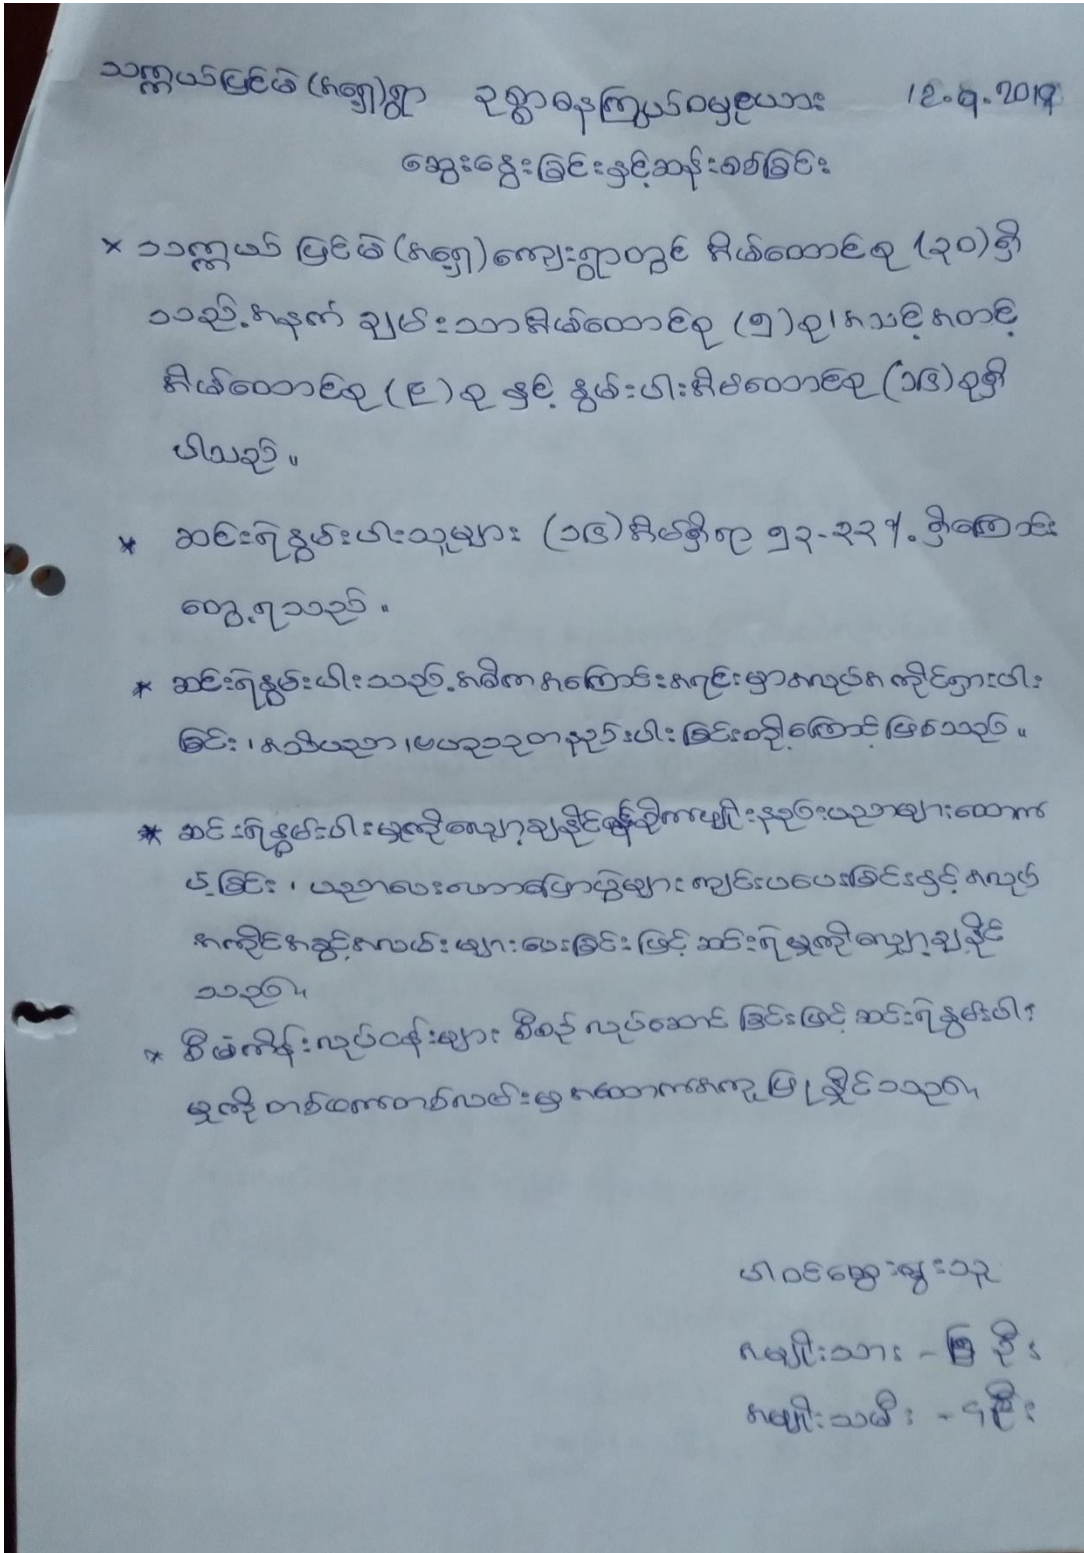 သက္ကယ်ပြင်မဲ(အရှေ့)ရွာ ဥစ္စာဓနကြွယ်ဝမှုဇယား
ဆွေးနွေးခြင်းနှင့်ဆန်းစစ်ခြင်း
* သက္ကယ်ပြင်မဲ(အရှေ့)ကျေးရွာတွင် အိမ်ထောင်စု (၃၀)ရှိ
သည့်အနက် ချမ်းသာအိမ်ထောင်စု (၅)စု၊အသင့်အတင့်
အိမ်ထောင်စု (၉)စု နှင့် နွမ်းပါးအိမ်ထောင်စု (၁၆)စုရှိ
ပါသည်။
* ဆင်းရဲနွမ်းပါးသူများ (၁၆)အိမ်ရှိရာ ၅၃.၃၃% ရှိကြောင်း
တွေ့ရသည်။
* ဆင်းရဲနွမ်းပါးသည့်အဓိကအကြောင်းအရင်းမှာအလုပ်အကိုင်ရှားပါး
ခြင်း၊အသိပညာ၊ဗဟုသုတနည်းပါးခြင်းတို့ကြောင့်ဖြစ်သည်။
* ဆင်းရဲနွမ်းပါးမှုကိုလျှော့ချနိုင်ရန်စိုက်ပျိုးနည်းပညာများထောက်
ပံ့ခြင်း၊ ပညာပေးဟောပြောပွဲများ ကျင်းပပေးခြင်းနှင့်အလုပ်
အကိုင်အခွင့်အလမ်းများပေးခြင်းဖြင့် ဆင်းရဲမှုကိုလျှော့ချနိုင်
သည်။
* စီမံကိန်းလုပ်ငန်းများ စီစဉ်လုပ်ဆောင်ခြင်းဖြင့်ဆင်းရဲနွမ်းပါး
မှုကို တစ်ထောင့်တစ်လမ်းမှအထောက်အကူပြုနိုင်သည်။
ပါဝင်ဆွေးနွေးသူ
အမျိုးသား - ဦး
အမျိုးသမီး - ဦး